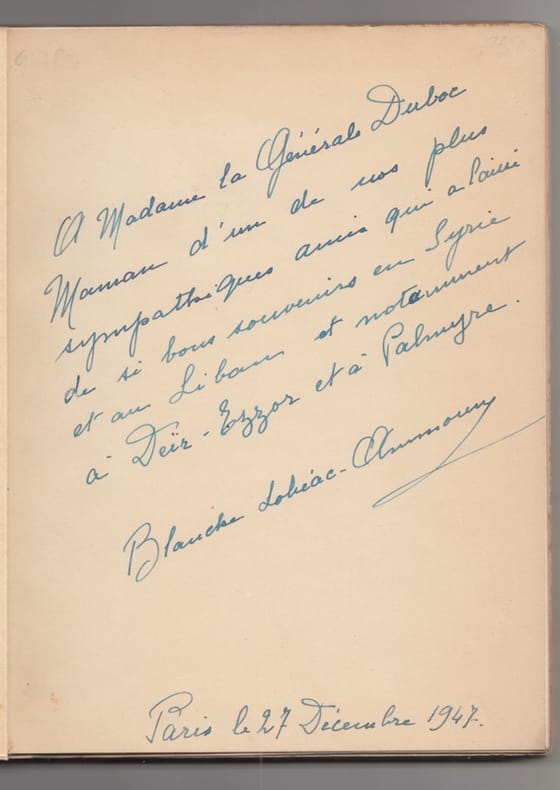 A Madame la Générale Duboc
Maman d'un de nos plus
sympathiques amis qui a laissé
de si bons souvenirs en Syrie
et au Liban et notamment
à Deïr-Ezzor et à Palmyre.
Blanche Lohéac-Ammoun
Paris le 27 Décembre 1947.